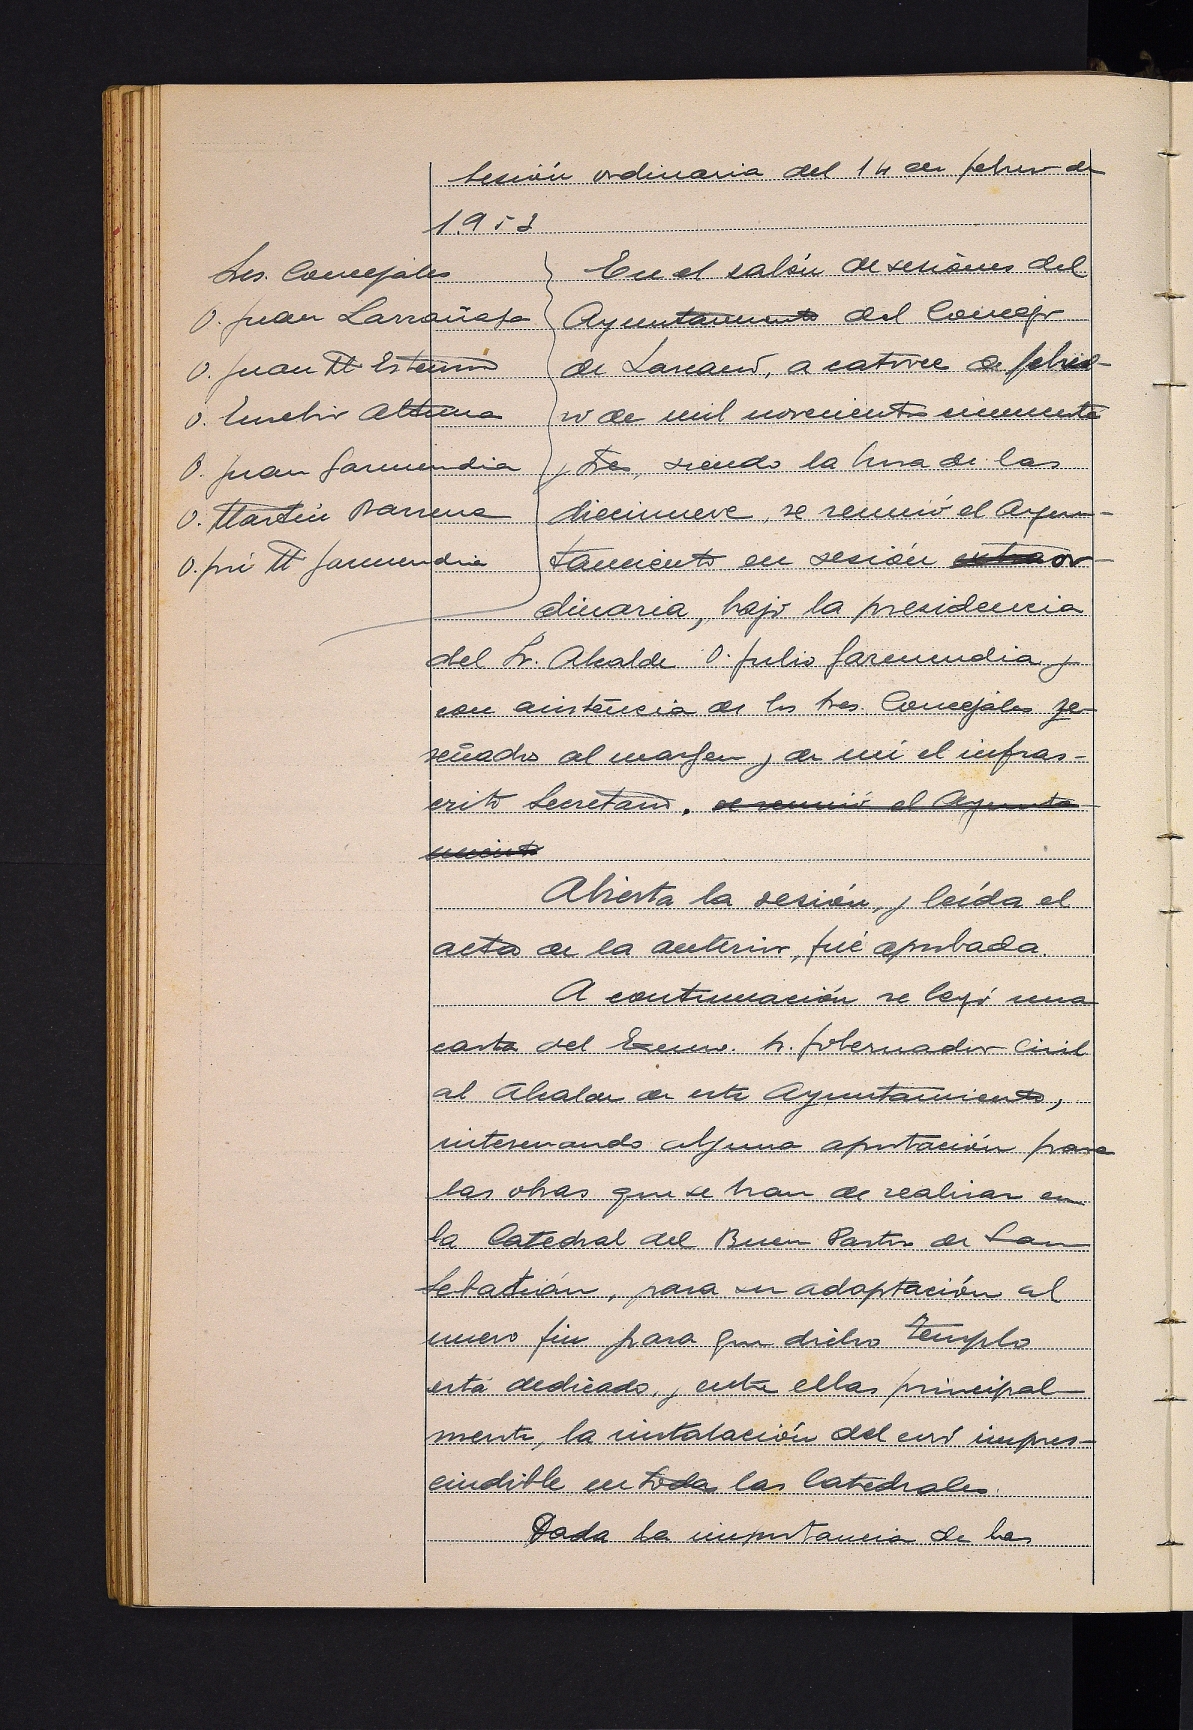 Sesión ordinaria del 14 de febrero de
1953
Sres. Concejales
D. Juan Larrañaga
D. Juan Mª
D. Eusebio Altuna
D. Juan Garmendia
D. Martín Barrena
D. José Mª Garmendia
En el salón de sesiones del
Ayuntamiento del Concejo
de Lazcano, a catorce de febre-
ro de mil novecientos cincuenta
y tres, siendo la hora de las
diecinueve, se reunió el Ayun-
tamiento en sesión extraor-
dinaria, bajo la presidencia
del Sr. Alcalde D. Julio Garmendia y
con asistencia de los Sres. Concejales re-
señados al margen y de mí el infras-
crito Secretario. se reunió el Ayunta
miento
Abierta la sesión, y leída el
acta de la anterior, fué aprobada.
A continuación se leyó una
carta del Excmo. Sr. Gobernador Civil
al Alcalde de este Ayuntamiento,
interesando alguna aportación para
las obras que se han de realizar en
la Catedral del Buen Pastor de San
Sebastián, para su adaptación al
nuevo fin para que dicho Templo
está dedicado, y entre ellas principal-
mente, la instalación del coro impres-
cindible en todas las Catedrales.
Dada la importancia de las